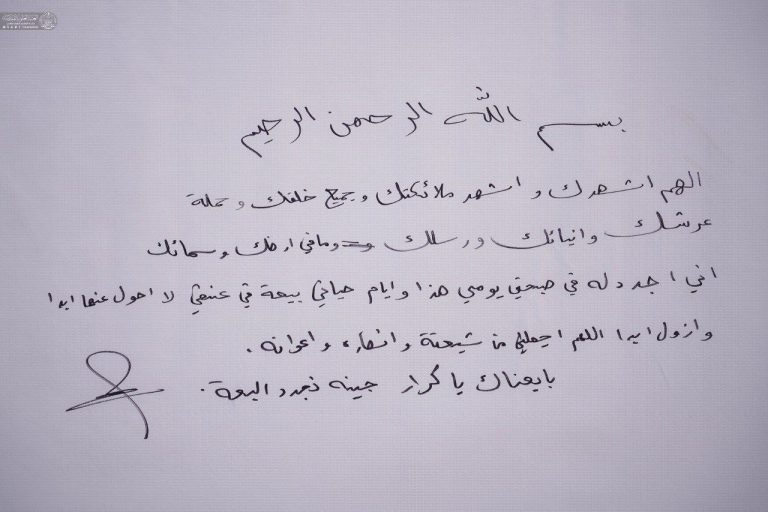 بسم الله الرحمن الرحيم
الهم اشهدك و اشهد ملائكتك و جميع خلقك و حملة
عرشك وانبيائك ورسلك و وما في ارضك وسمائك
اني اجدد له في صبحة يومي هذا وايام حياتي بيعة في عنقي لا احول عنها ابدا
وازول ابدا اللهم اجعلني من شيعتة وانصاره واعوانه .
بايعناك يا كرار جينه نجدد البيعة .